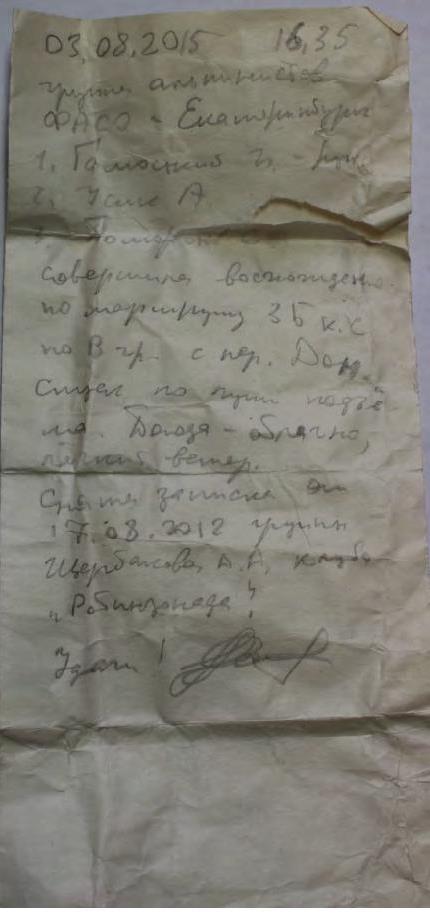 03.08.2015 16,35
группа альпинистов
ФАСО - Екатеринбург
1.
2. Усик А.
3.
совершила восхождение
по маршруту 3Б к.с
по В гр. с пер.
Спуск по пути подъё
ма. - облачно,
легкий ветер.
Снята записка от
17.08.2012 группы
Щербакова А.А, клуба
„Робинзонада".
Удачи!